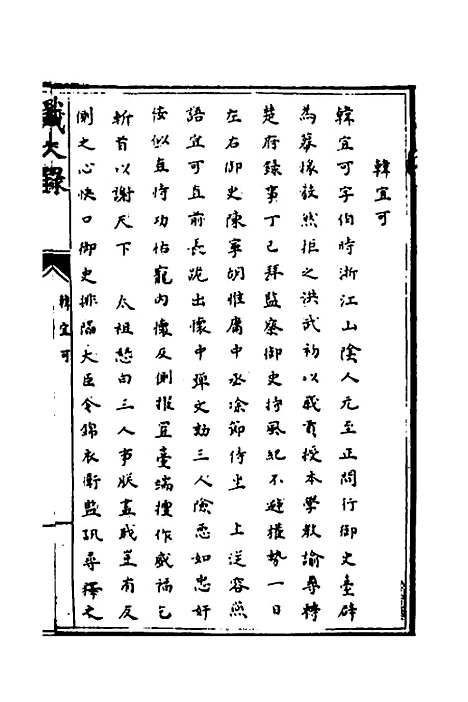 韓宜可
韓宜可字伯時浙江山陰人元至正間行御史臺辟
為蔡掾毅然拒之洪武初以歲貢授本學教諭尋轉
楚府錄事丁巳拜監察御史持風紀不避權勢一日
左右御史陳寧胡惟庸中丞涂節侍坐　上從容燕
語宜可直前長跪出懷中彈文劾三人險惡如忠奸
佞似直恃功怙寵內懷反側擅置臺端擅作威福乞
斬首以謝天下　太祖怒曰三人事朕盡職豈有反
側之心快口御史排陷大臣令錦衣衛監訊尋釋之
韓宜可